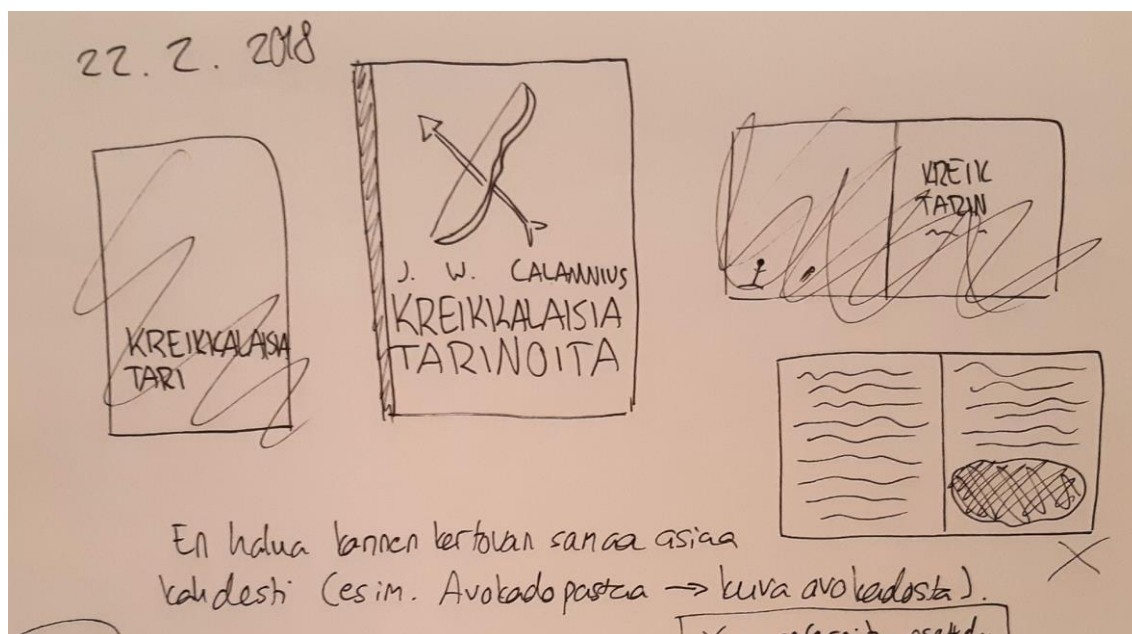 22. 2. 2018
KREIKKALAISIA
TARI
J. W. CALAMNIUS
KREIKKALAISIA
TARINOITA
KREIK
TARIN
En halua kannen kertovan samaa asiaa
kahdesti (esim. Avokadopastaa → kuva avokadosta).